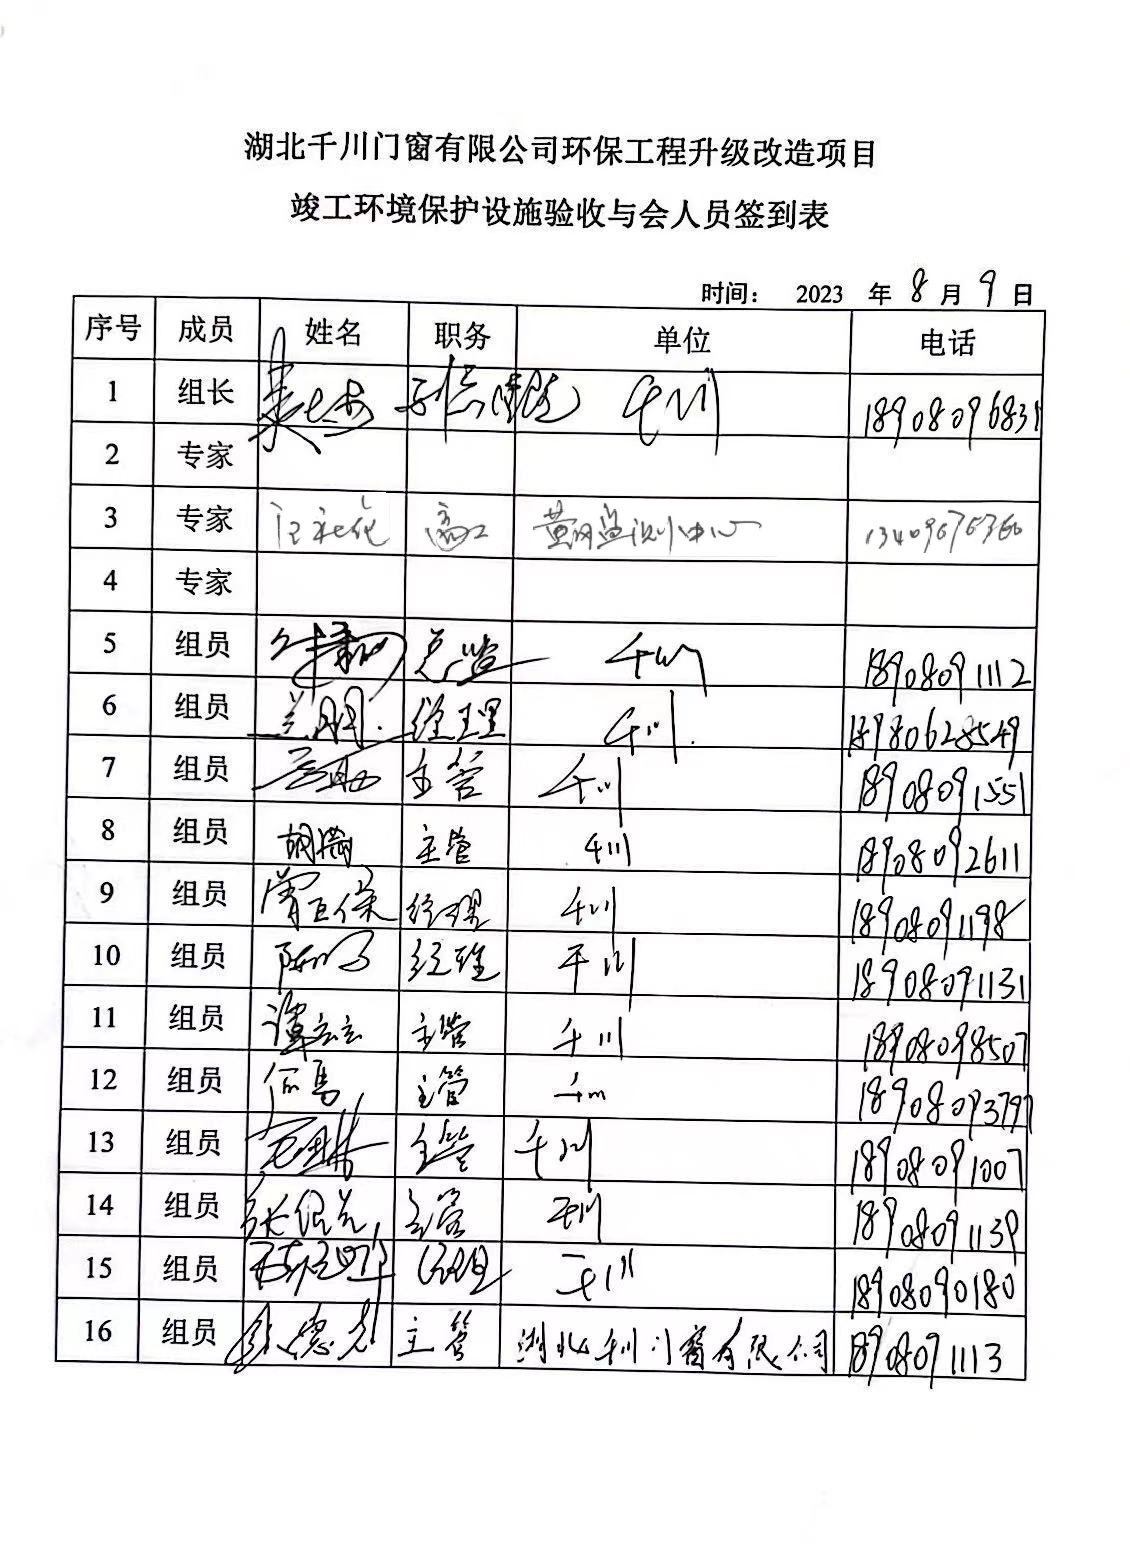 湖北千川门窗有限公司环保工程升级改造项目
竣工环境保护设施验收与会人员签到表
时间： 2023 年 8 月 9 日
序号 成员 姓名 职务 单位 电话
1 组长 千川 1890809683
2 专家
3 专家 高工 黄冈监测中心
4 专家
5 组员 总监 千川 18908091112
6 组员 兰明 经理 千川 18980628549
7 组员 主管 千川 18908091551
8 组员 胡满 主管 千川 18908092611
9 组员 曾巨保 经理 千川 18908091198
10 组员 经理 千川 18908091131
11 组员 谭云云 主管 千川 18908098507
12 组员 何马 主管 千川 18908093797
13 组员 主管 千川 18908091007
14 组员 张银芳 主管 千川 18908091139
15 组员 经理 千川 18908090180
16 组员 主管 湖北千川门窗有限公司 18908091113